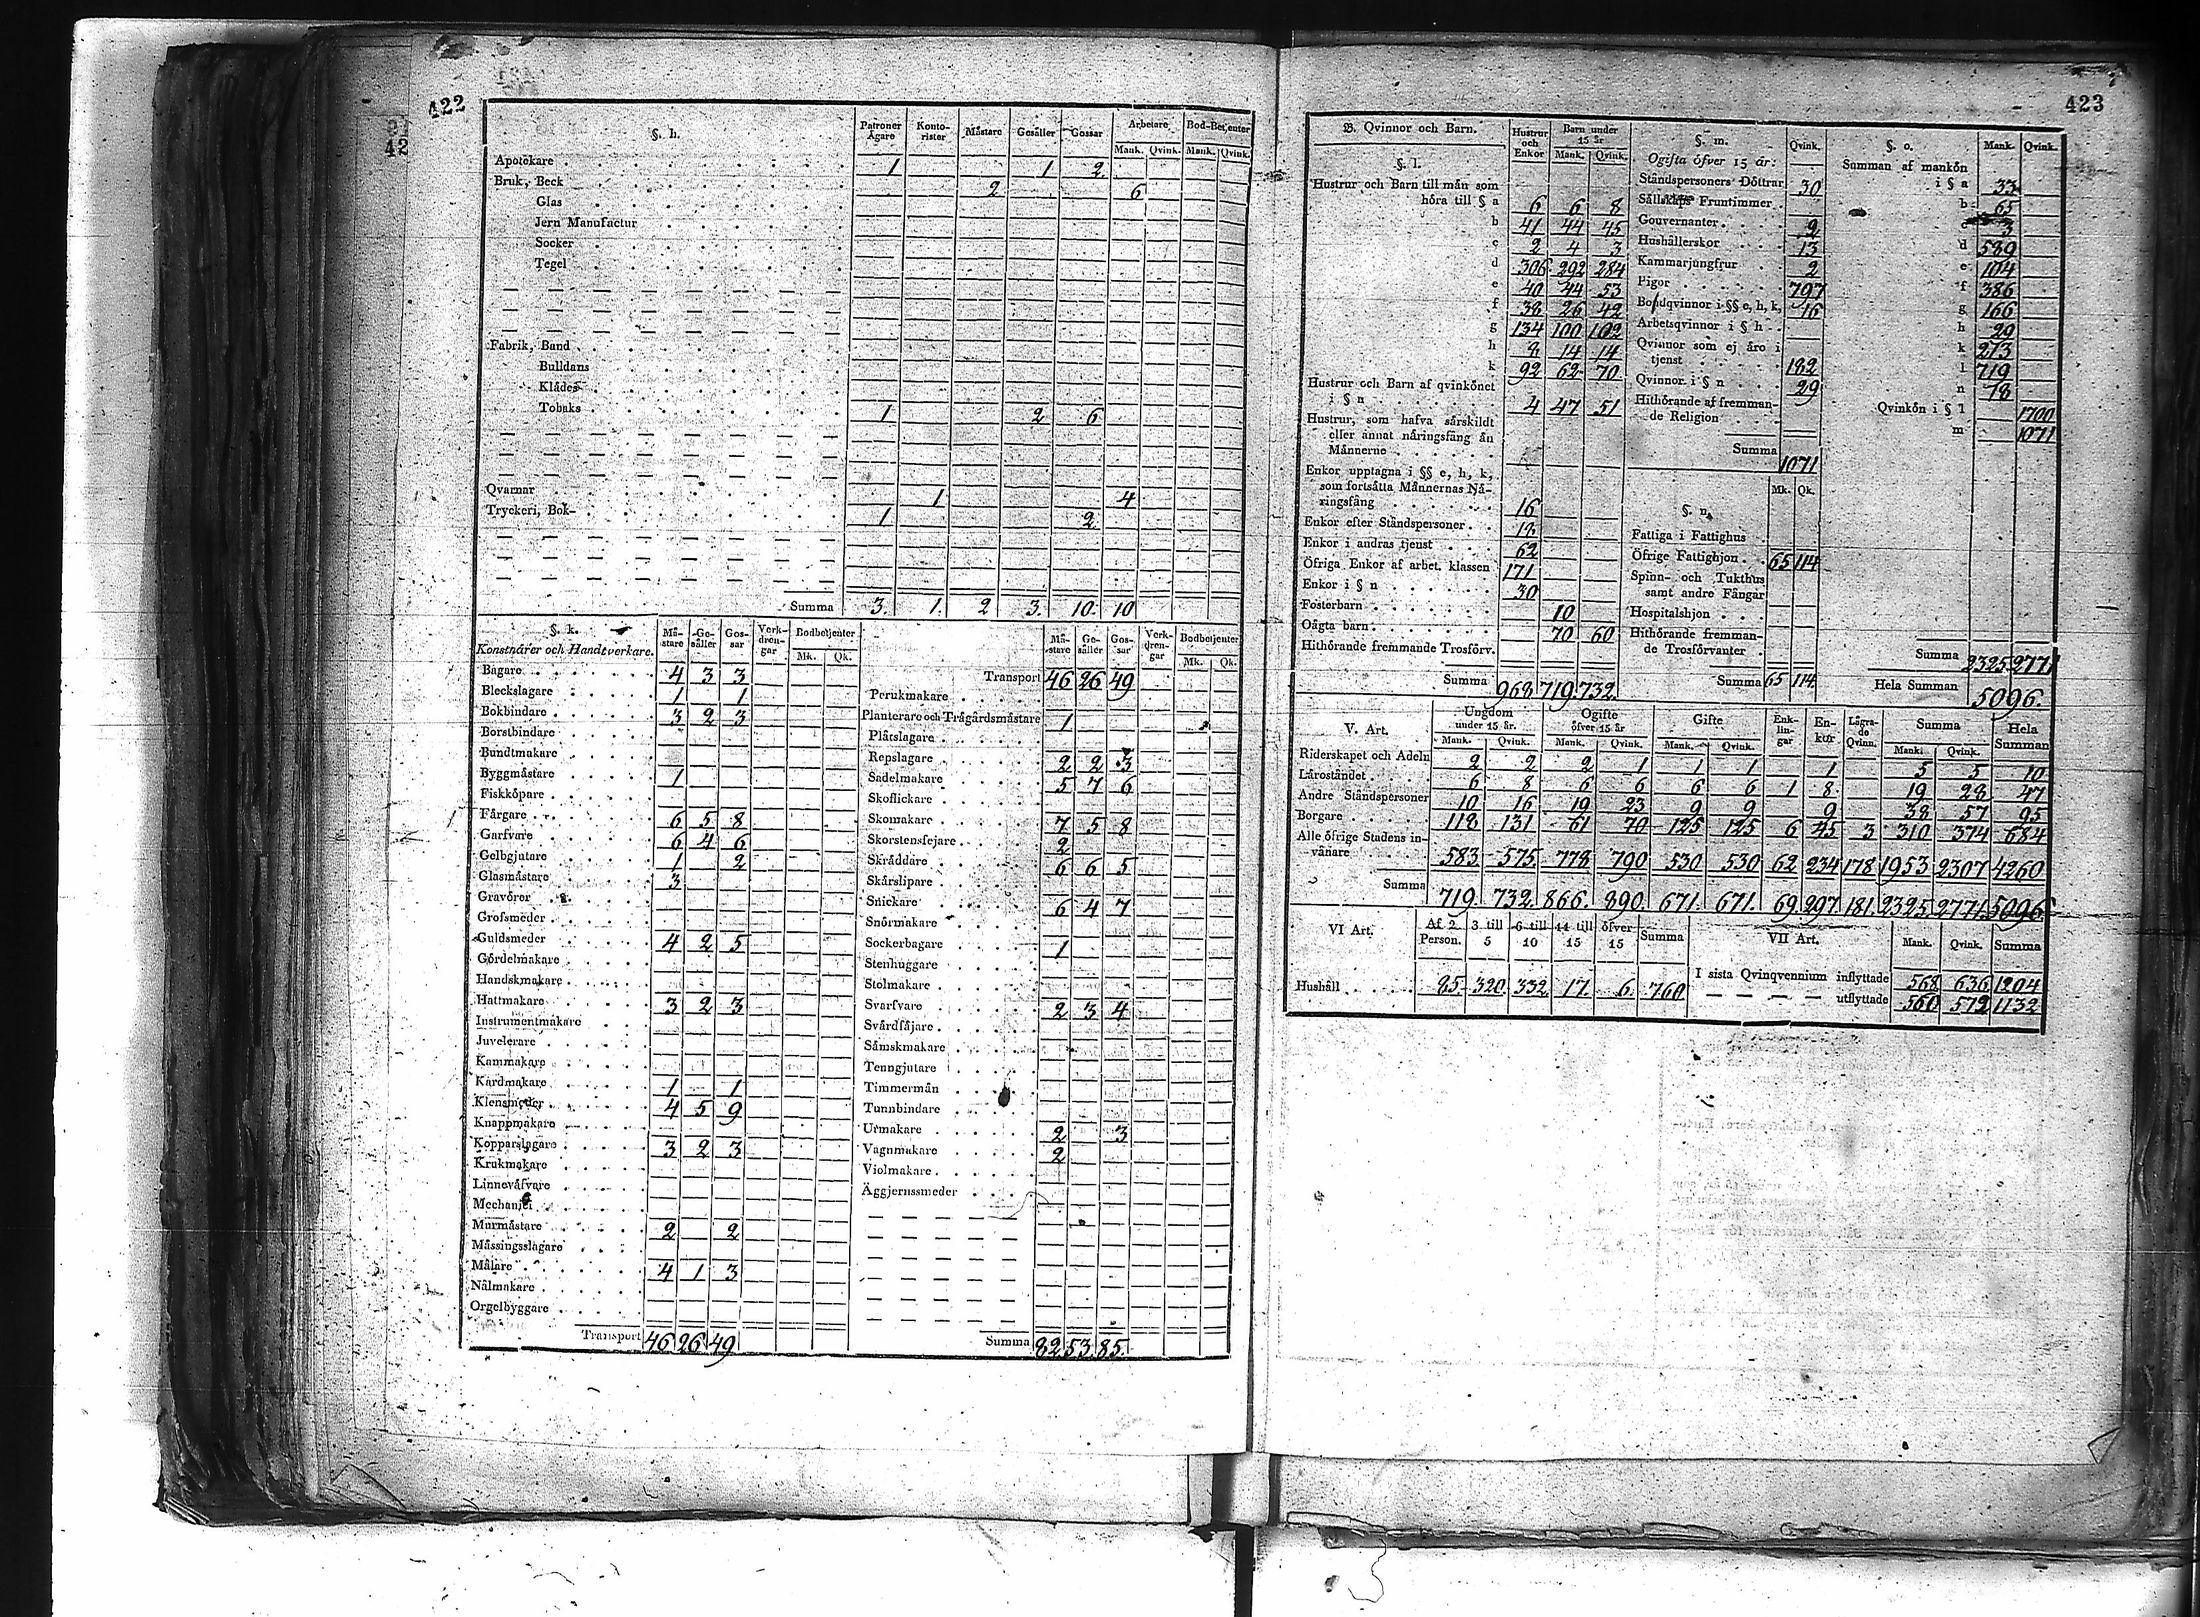 422
§. h. Patroner Ägare Kontorister Mästare Gesäller Gossar Arbetare Bod-Betjenter
Mank. Qvink. Mank. Qvink.
Apotekare 1 1 2
Bruk, Beck 2 6
Glas
Jern Manufactur
Socker
Tegel
Fabrik, Band
Bulldans
Klädes
Tobaks 1 2 6
Qvarnar 1 4
Tryckeri, Bok- 1 2
Summa 3. 1. 2 3. 10. 10
§. k. Mästare Gesäller Gossar Verkdrengar Bodbetjenter
Konstnärer och Handtverkare. Mk. Qk.
Bagare 4 3 3
Bleckslagare 1 1
Bokbindare 3 2 3
Borstbindare
Bundtmakare
Byggmästare 1
Fiskköpare
Färgare 6 5 8
Garfvare 6 4 6
Gelbgjutare 1 2
Glasmästare 3
Gravörer
Grofsmeder
Guldsmeder 4 2 5
Gördelmakare
Handskmakare
Hattmakare 3 2 3
Instrumentmakare
Juvelerare
Kammakare
Kardmakare 1 1
Klensmeder 4 5 9
Knappmakare
Kopparslagare 3 2 3
Krukmakare
Linnevåfvare
Mechanici
Murmästare 2 2
Mässingsslagare
Målare 4 1 3
Nålmakare
Orgelbyggare
Transport 46 26 49
Mästare Gesäller Gossar Verkdrengar Bodbetjenter
Mk. Qk.
Transport 46 26 49
Perukmakare
Planterare och Trägårdsmästare 1
Plåtslagare
Repslagare 2 2 3
Sadelmakare 5 7 6
Skoflickare
Skomakare 7 5 8
Skorstensfejare 2
Skräddare 6 6 5
Skärslipare
Snickare 6 4 7
Snörmakare
Sockerbagare 1
Stenhuggare
Stolmakare
Svarfvare 2 3 4
Svärdfäjare
Sämskmakare
Tenngjutare
Timmermän
Tunnbindare
Urmakare 2 3
Vagnmakare 2
Violmakare
Äggjernssmeder
Summa 82 53 85.
423
B. Qvinnor och Barn. Hustrur och Enkor Barn under 15 år
Mank. Qvink.
§. l.
Hustrur och Barn till män som
höra till § a 6 6 8
b 41 44 45
c 2 4 3
d 306 292 284
e 40 44 53
f 38 26 42
g 134 100 102
h 8 14 14
k 92 62 70
Hustrur och Barn af qvinkönet
i § n 4 47 51
Hustrur, som hafva särskildt
eller annat näringsfång än
Männerne
Enkor upptagna i §§ e, h, k,
som fortsätta Männernas Näringsfång 16
Enkor efter Ståndspersoner 18
Enkor i andras tjenst 62
Öfriga Enkor af arbet. klassen 171
Enkor i § n 30
Fosterbarn 10
Oägta barn 70 60
Hithörande fremmande Trosförv.
Summa 968 719 732.
§. m. Qvink.
Ogifta öfver 15 år:
Ståndspersoners Döttrar 30
Sällskaps Fruntimmer
Gouvernanter 2
Hushållerskor 13
Kammarjungfrur 2
Pigor 797
Bodqvinnor i §§ e, h, k, 16
Arbetsqvinnor i § h
Qvinnor som ej äro i
tjenst 182
Qvinnor i § n 29
Hithörande af fremmande Religion
Summa 1071
Mk. Qk.
§. n.
Fattiga i Fattighus
Öfrige Fattighjon 65 114
Spinn- och Tukthus
samt andre Fångar
Hospitalshjon
Hithörande fremmande Trosförvanter
Summa 65 114
§. o. Mank. Qvink.
Summan af mankön
i § a 33
b 65
c 3
d 589
e 104
f 386
g 166
h 29
k 273
l 719
n 78
Qvinkön i § l 1700
m 1071
Summa 2325 2771
Hela Summan 5096.
V. Art. Ungdom under 15 år. Ogifte öfver 15 år Gifte Enklingar Enkor Lägrade Qvinn. Summa Hela Summan
Mank. Qvink. Mank. Qvink. Mank. Qvink. Mank. Qvink.
Riderskapet och Adeln 2 2 2 1 1 1 1 5 5 10
Läroståndet 6 8 6 6 6 6 1 8 19 28 47
Andre Ståndspersoner 10 16 19 23 9 9 9 38 57 95
Borgare 118 131 61 70 125 125 6 45 3 310 374 684
Alle öfrige Stadens invånare 583 575 778 790 530 530 62 234 178 1953 2307 4260
Summa 719. 732 866. 890 671. 671. 69 297. 181. 2325. 2771. 5096
VI Art. Af 2 Person. 3 till 5 6 till 10 11 till 15 öfver 15 Summa
Hushåll 85. 320. 332. 17. 6. 760
VII Art. Mank. Qvink. Summa
I sista Qvinqvennium inflyttade 568 636 1204
utflyttade 560 572 1132